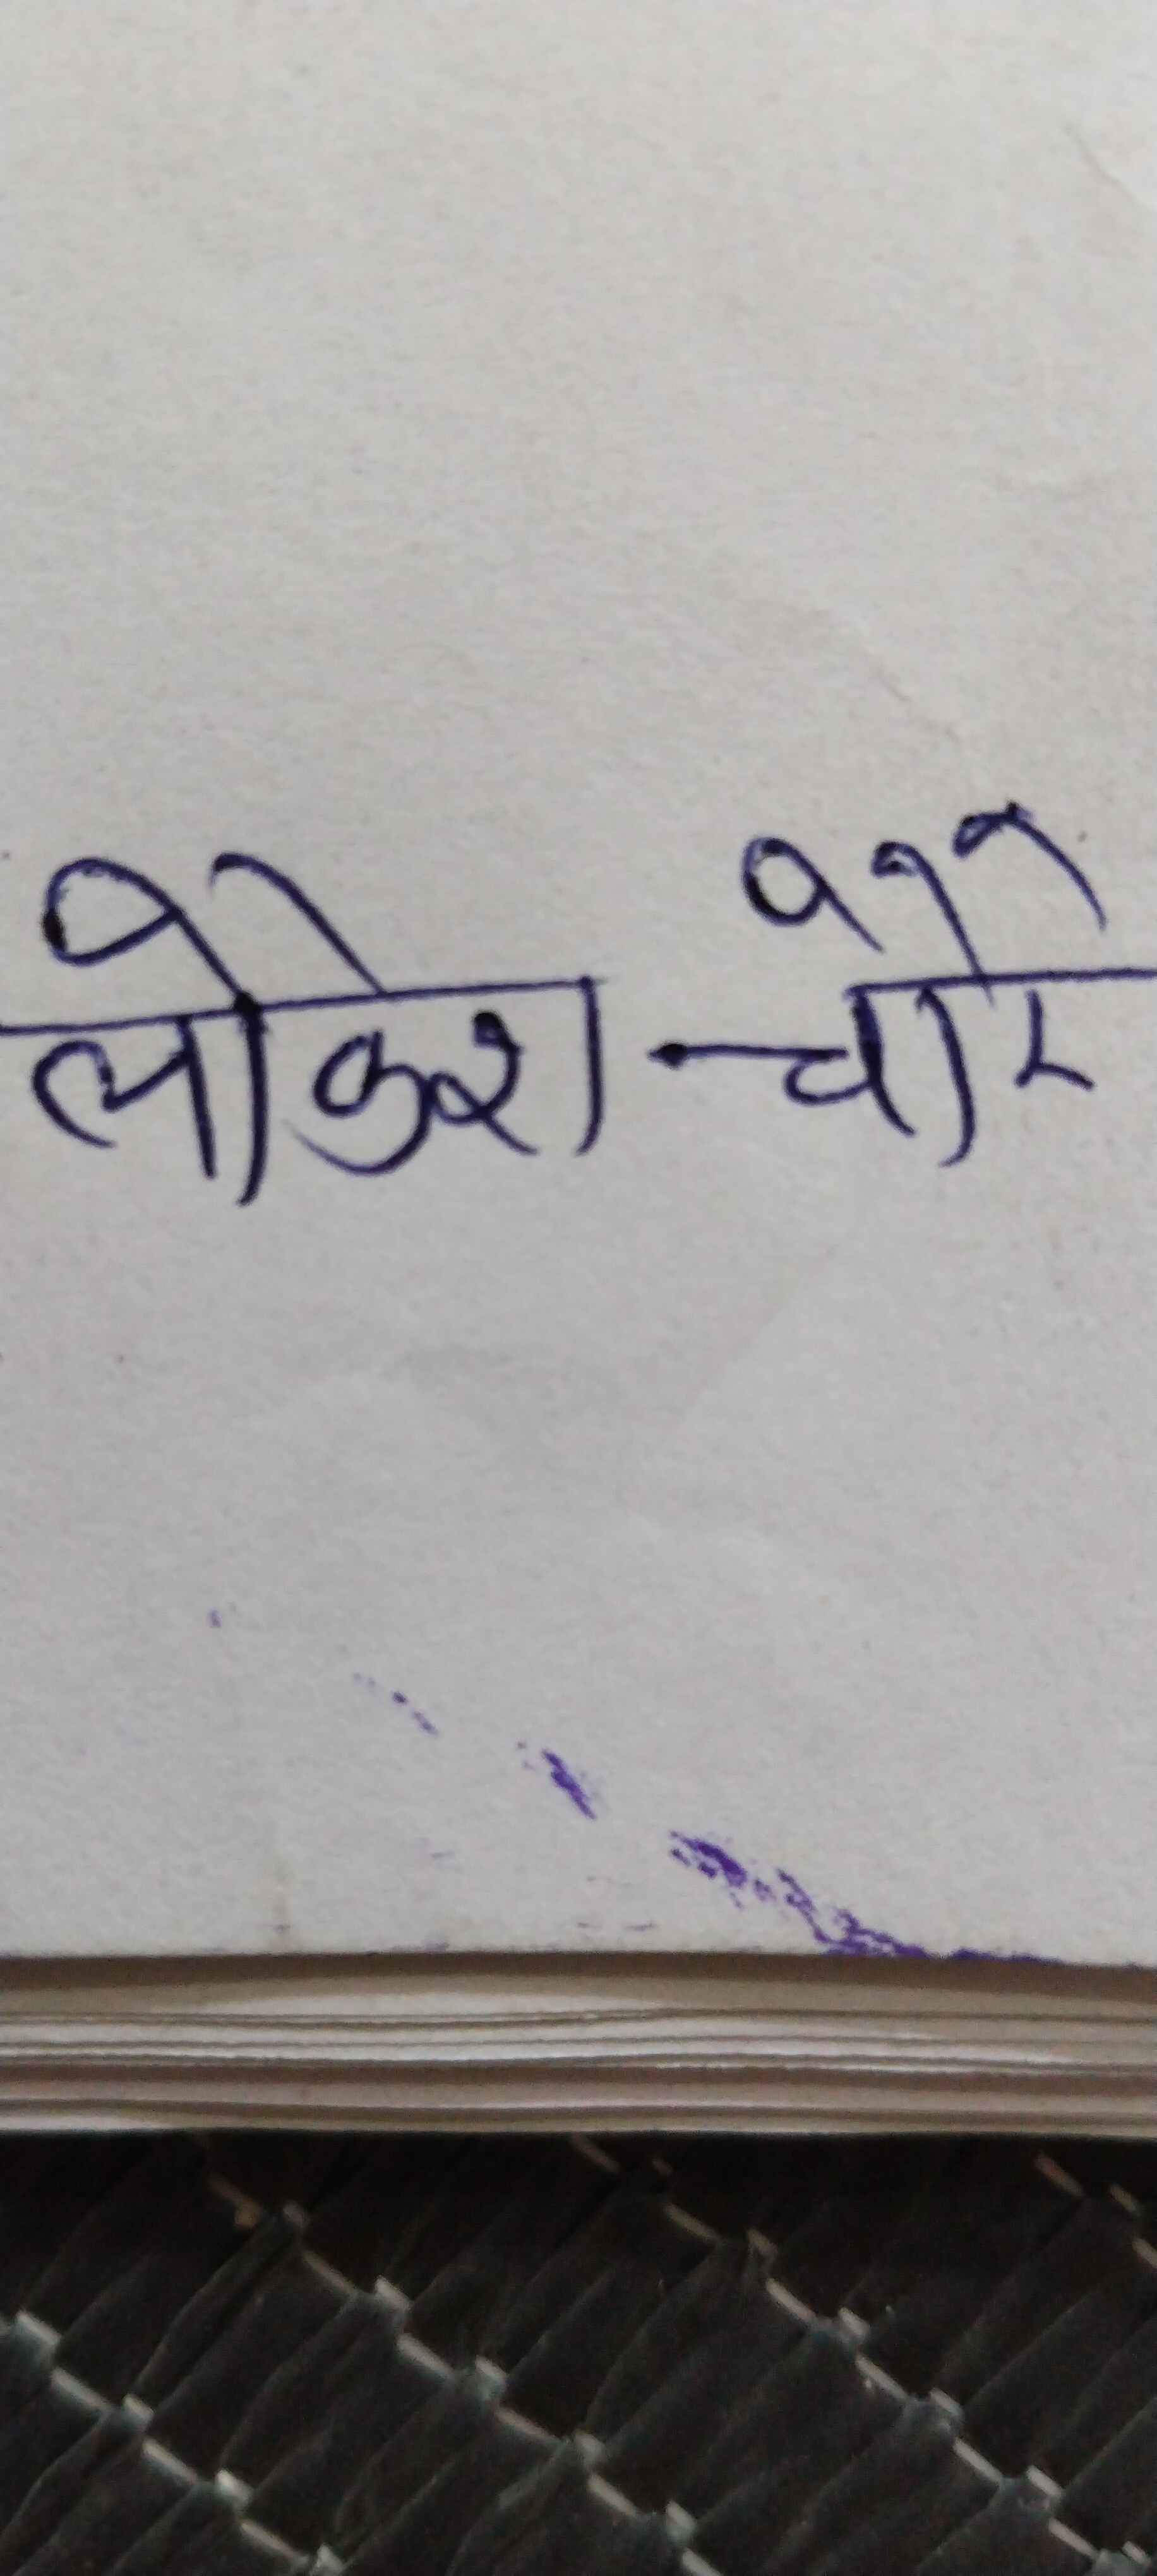 लोकेश चौरे